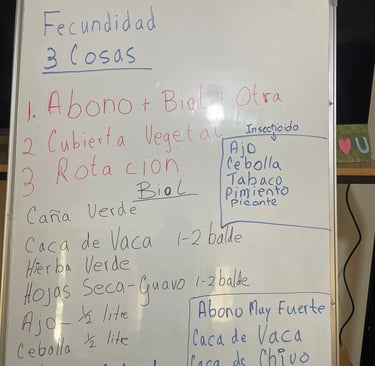 Fecundidad
3 Cosas
1. Abono + Biol + Otra
2 Cubierta Vegetal
3 Rotacion
Insecticido
Ajo
Cebolla
Tabaco
Pimiento
Picante
Biol
Caña Verde
Caca de Vaca 1-2 balde
Hierba Verde
Hojas Seca-Guavo 1-2 balde
Ajo - ½ litre
Cebolla ½ lite
Abono Muy Fuerte
Caca de Vaca
Caca de Chivo
U